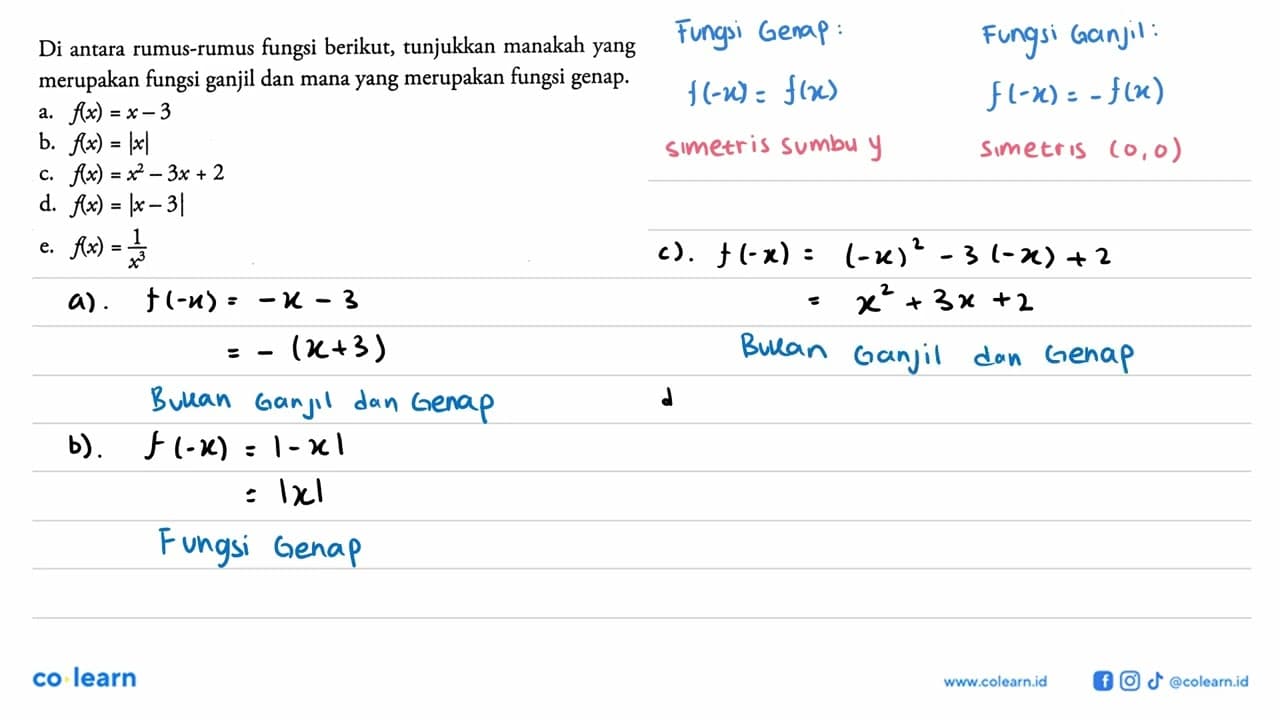 Di antara rumus-rumus fungsi berikut, tunjukkan manakah yang
merupakan fungsi ganjil dan mana yang merupakan fungsi genap.
a. f(x) = x – 3
b. f(x) = |x|
c. f(x) = x² – 3x + 2
d. f(x) = |x – 3|
e. f(x) = 1/x³
Fungsi Genap :
f(-x) = f(x)
simetris sumbu y
Fungsi Ganjil :
f(-x) = - f(x)
simetris (0,0)
a). f(-x) = -x - 3
= - (x+3)
Bukan Ganjil dan Genap
b). f(-x) = |-x|
= |x|
Fungsi Genap
c). f(-x) = (-x)² - 3(-x) + 2
= x² + 3x + 2
Bukan Ganjil dan Genap
d
co·learn
www.colearn.id
@colearn.id